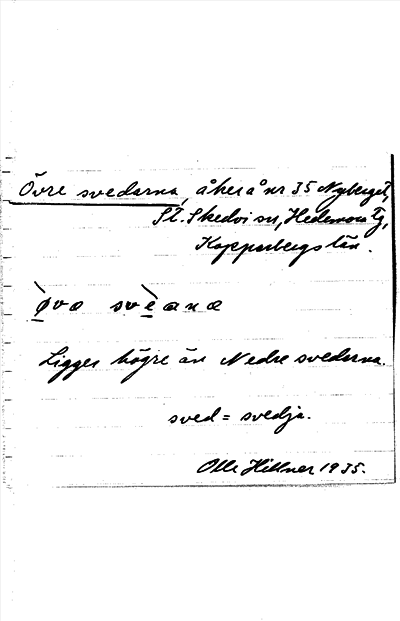 Övre svedarna, åker å nr 35 Nyberget,
St. Skedvi sn, Hedemora tg,
Kopparbergs län.
ø̀væ svèanæ
Ligger högre än Nedre svedarna.
sved = svedja.
Olle Hillner 1935.